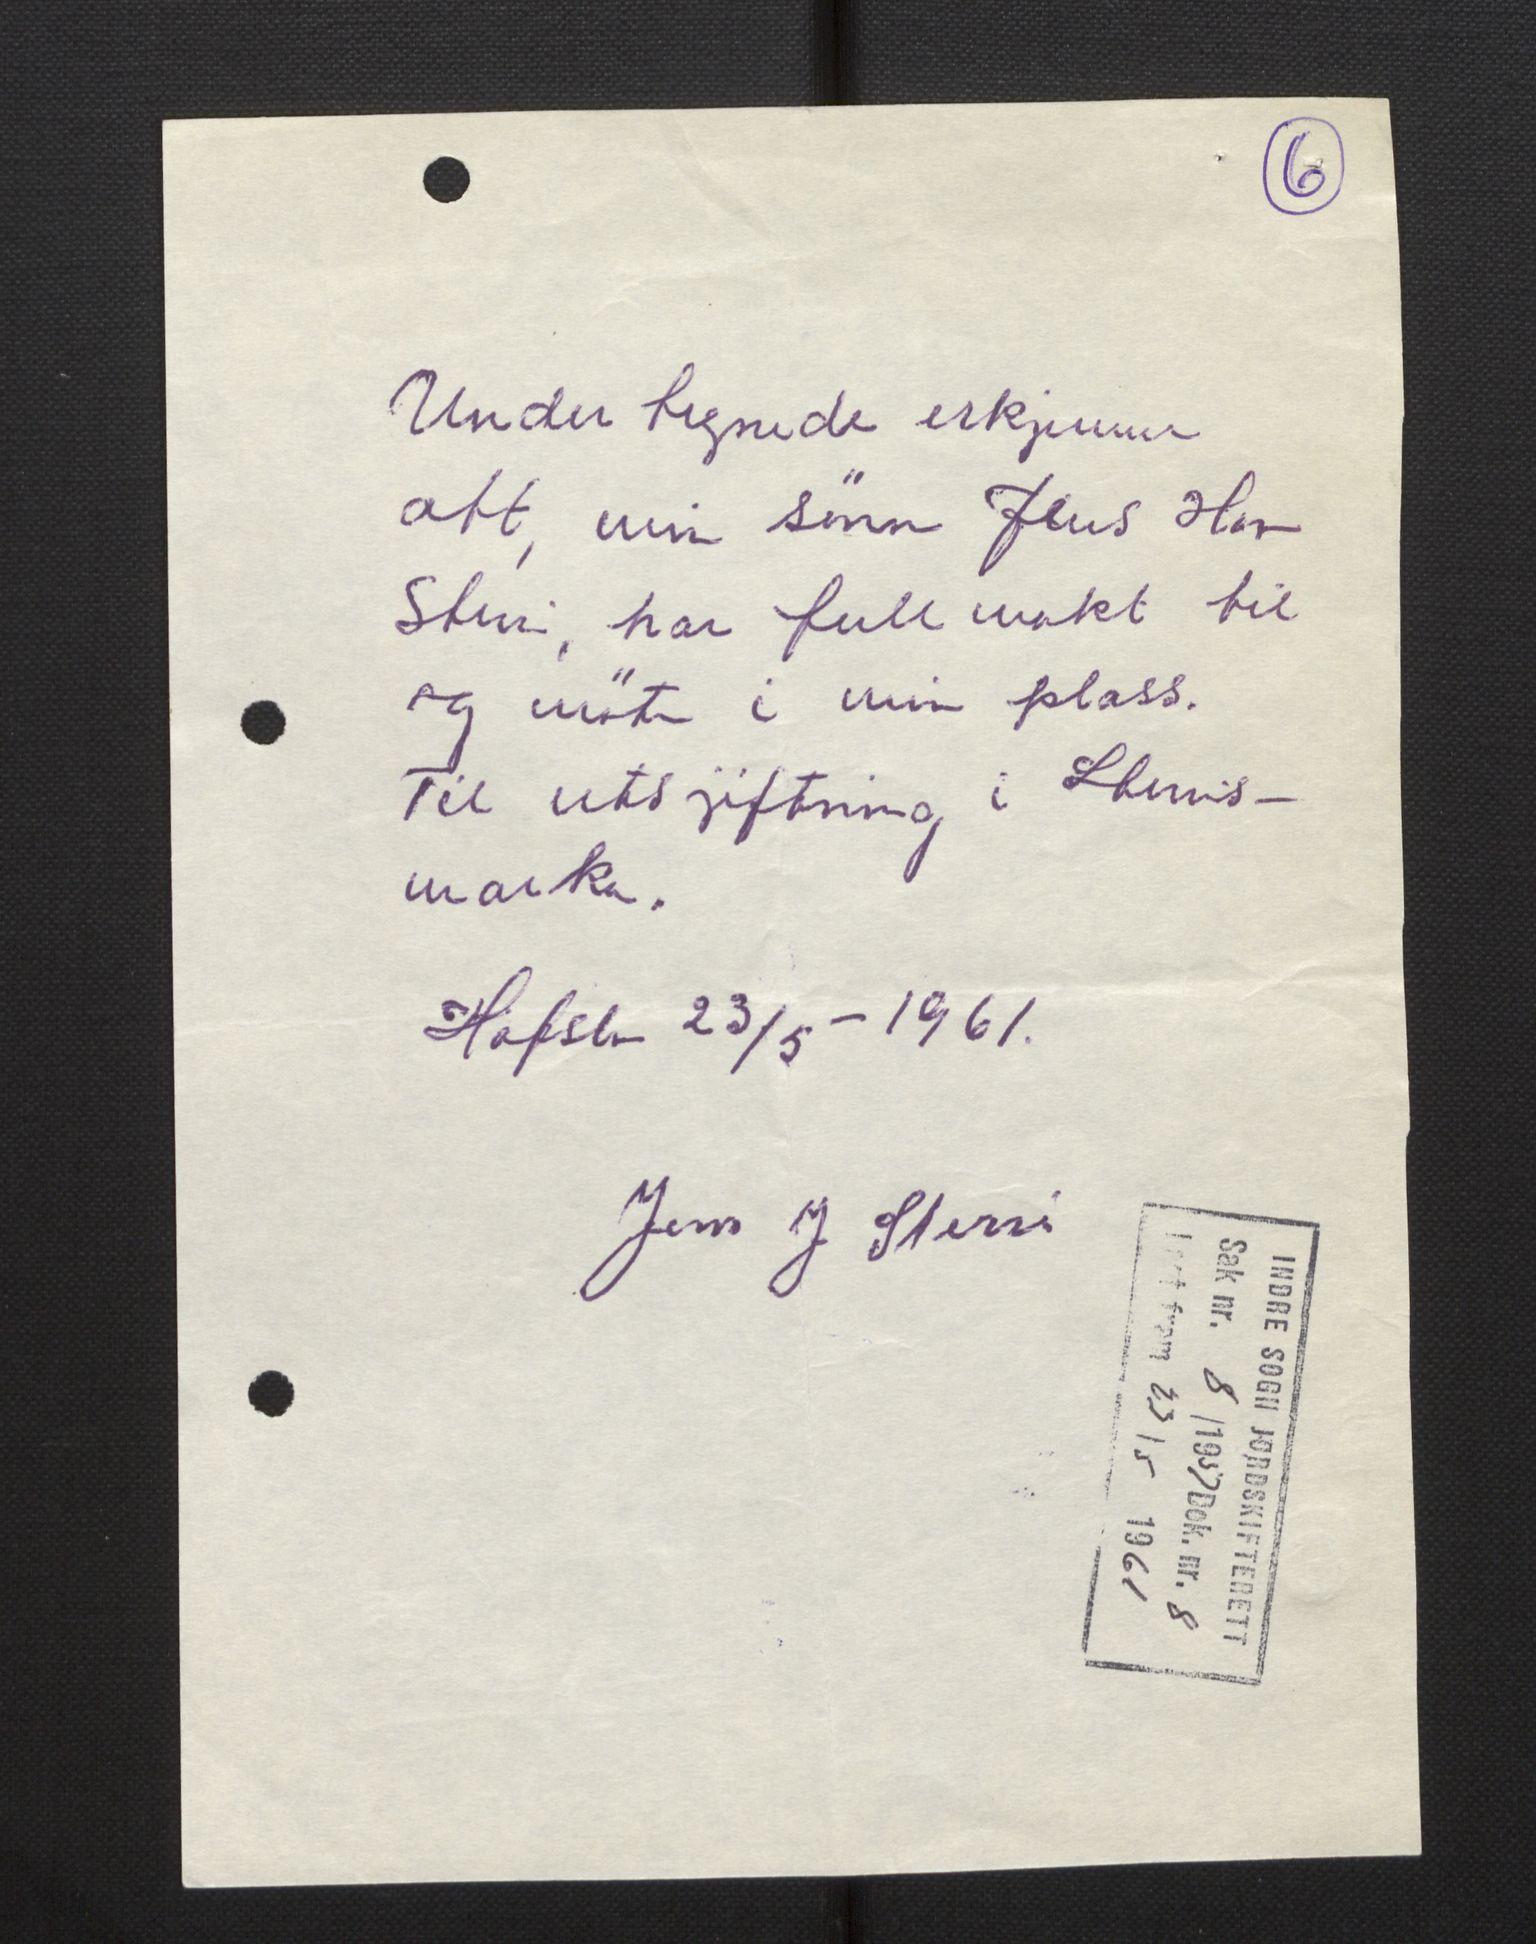 6
Under tegnede erkjenner
att, min sönn Jens Har
Sterri, har full makt til
og möte i min plass.
Til utsjiftning i Sterris-
marka.
Hafslo 23/5 - 1961.
Jens J Sterri
INDRE SOGN JORDSKIFTERETT
Sak nr. 8/1957 Dok. nr. 8
Lagt fram 23/5 1961